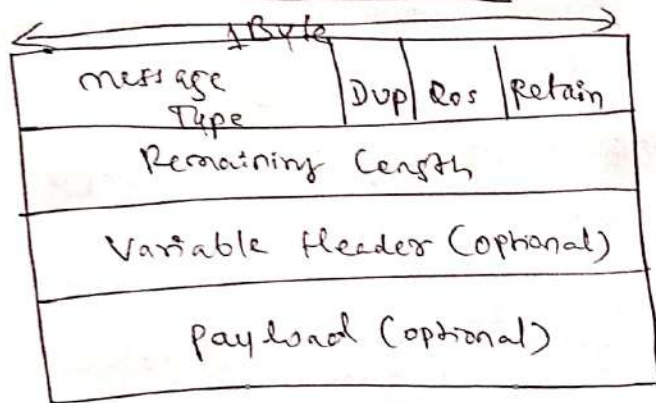 1 Byte
Message Type
Dup
Qos
Retain
Remaining Length
Variable Header (optional)
Payload (optional)